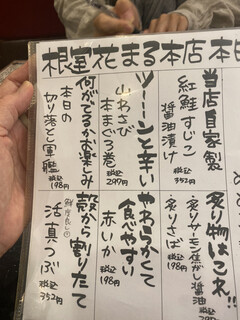 根室花まる本店 本日
当店自家製
紅鮭すじこ
醤油漬け
税込
352円
ツーーンと辛い
山わさび
本まぐろ巻
税込
297円
何がでるかお楽しみ
本日の
切り落とし軍艦
税込
198円
炙り物はこれ!!
炙りサーモン焦がし醤油
炙りさば
税込
198円
やわらかくて
食べやすい
赤いか
税込
198円
殻から割りたて
鮮度良し
活真つぶ
税込
352円